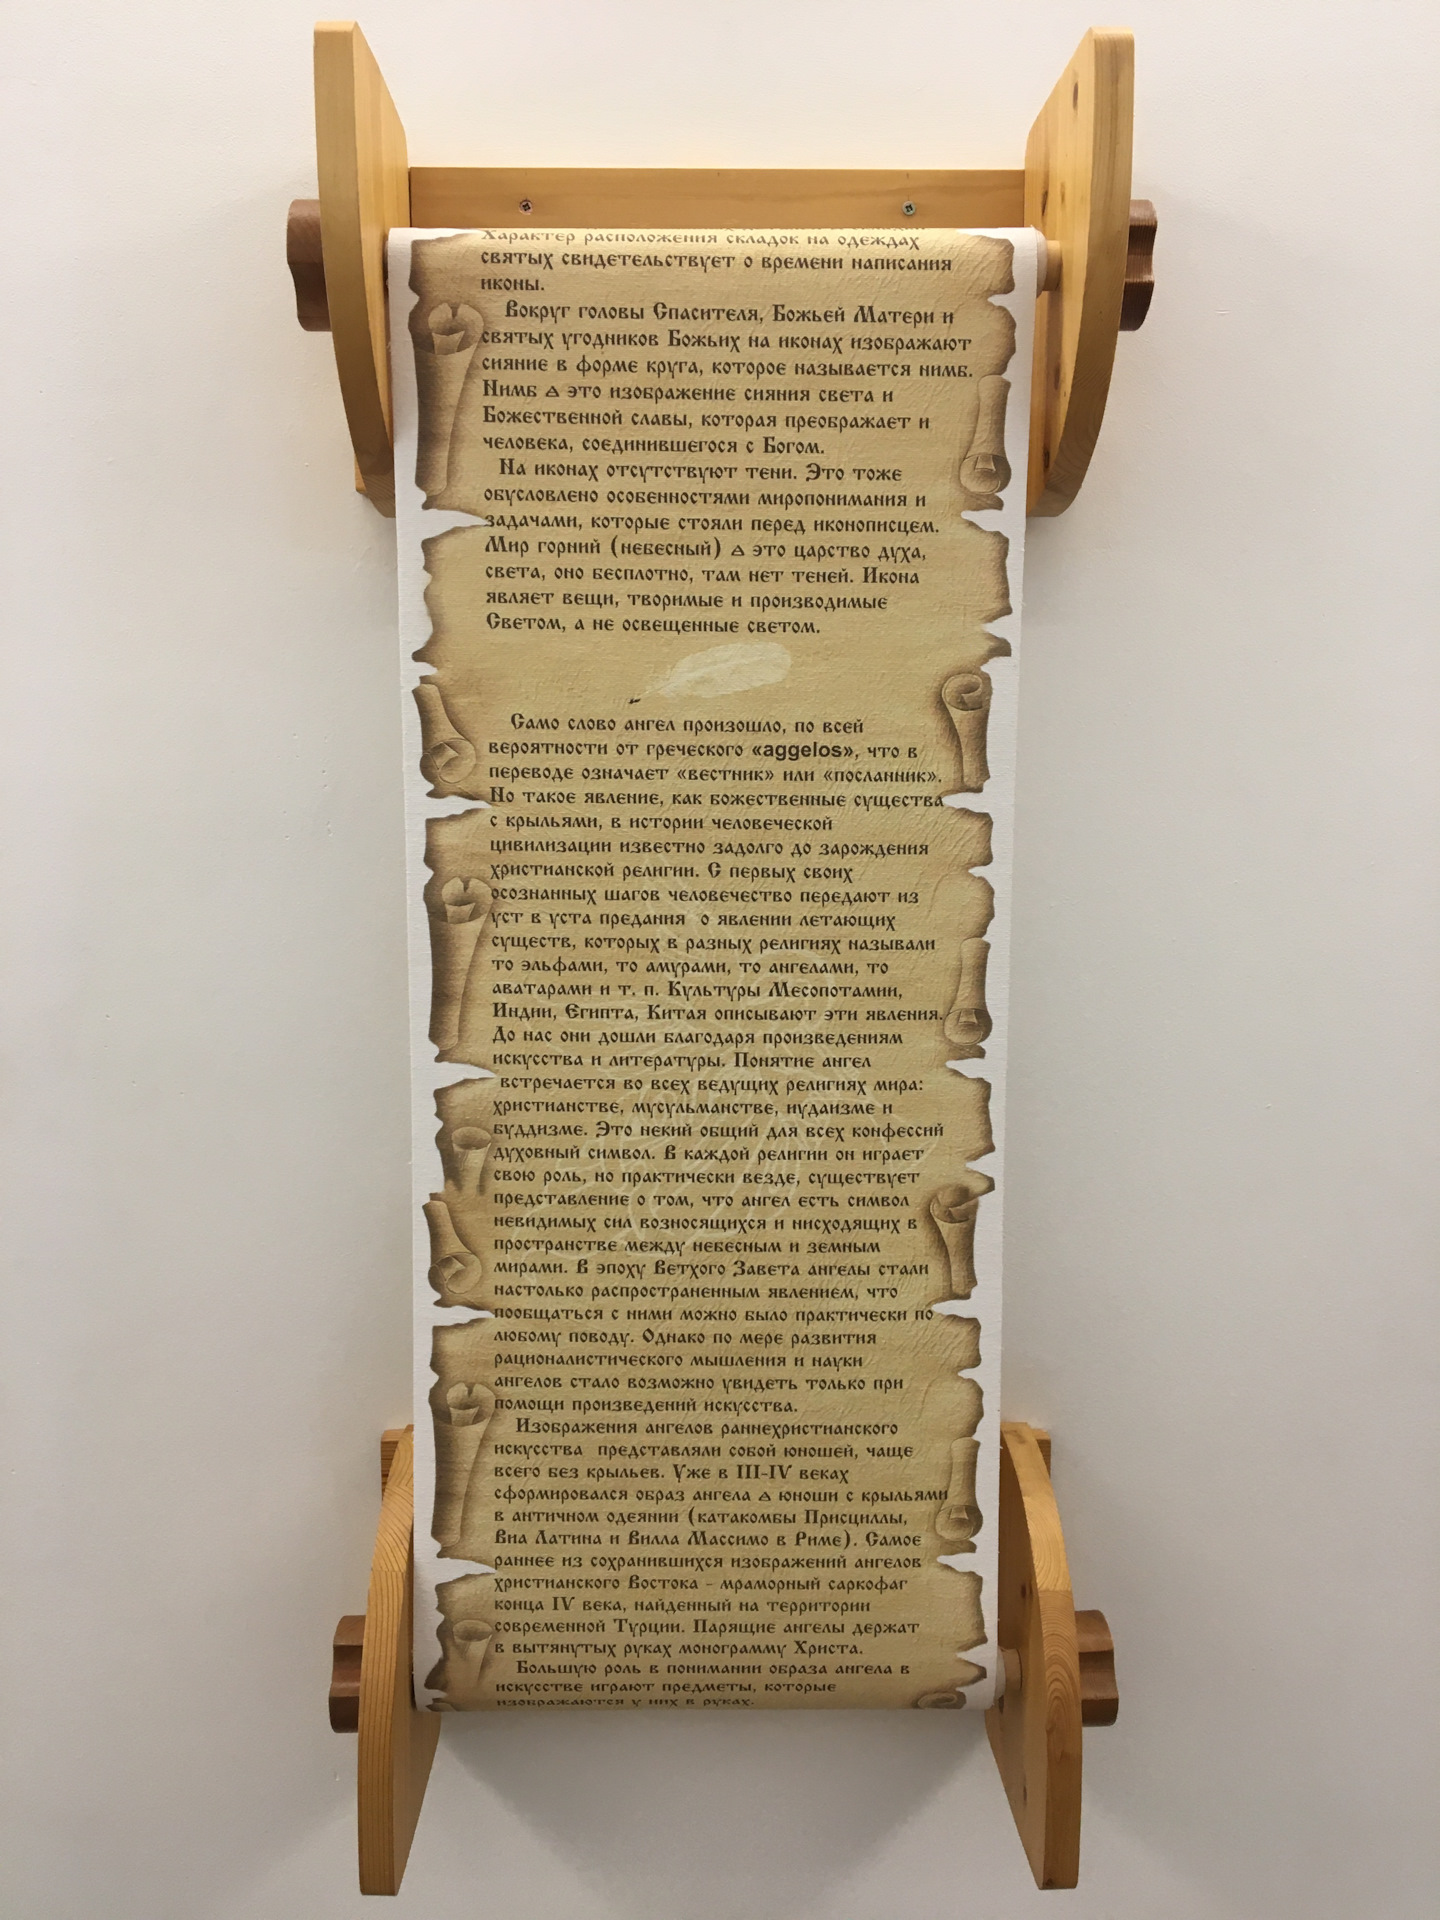 Характер расположения складок на одеждах
святых свидетельствует о времени написания
иконы.
Вокруг головы Спасителя, Божьей Матери и
святых угодников Божьих на иконах изображают
сияние в форме круга, которое называется нимб.
Нимб ѧ это изображение сияния света и
Божественной славы, которая преображает и
человека, соединившегося с Богом.
На иконах отсутствуют тени. Это тоже
обусловлено особенностями миропонимания и
задачами, которые стояли перед иконописцем.
Мир горний (небесный) ѧ это царство духа,
света, оно бесплотно, там нет теней. Икона
являет вещи, творимые и производимые
Светом, а не освещенные светом.
Само слово ангел произошло, по всей
вероятности от греческого «aggelos», что в
переводе означает «вестник» или «посланник».
Но такое явление, как божественные существа
с крыльями, в истории человеческой
цивилизации известно задолго до зарождения
христианской религии. С первых своих
осознанных шагов человечество передают из
уст в уста предания о явлении летающих
существ, которых в разных религиях называли
то эльфами, то амурами, то ангелами, то
аватарами и т. п. Культуры Месопотамии,
Индии, Египта, Китая описывают эти явления.
До нас они дошли благодаря произведениям
искусства и литературы. Понятие ангел
встречается во всех ведущих религиях мира:
христианстве, мусульманстве, иудаизме и
буддизме. Это некий общий для всех конфессий
духовный символ. В каждой религии он играет
свою роль, но практически везде, существует
представление о том, что ангел есть символ
невидимых сил возносящихся и нисходящих в
пространстве между небесным и земным
мирами. В эпоху Ветхого Завета ангелы стали
настолько распространенным явлением, что
пообщаться с ними можно было практически по
любому поводу. Однако по мере развития
рационалистического мышления и науки
ангелов стало возможно увидеть только при
помощи произведений искусства.
Изображения ангелов раннехристианского
искусства представляли собой юношей, чаще
всего без крыльев. Уже в III-IV веках
сформировался образ ангела ѧ юноши с крыльями
в античном одеянии (катакомбы Присциллы,
Виа Латина и Вилла Массимо в Риме). Самое
раннее из сохранившихся изображений ангелов
христианского Востока - мраморный саркофаг
конца IV века, найденный на территории
современной Турции. Парящие ангелы держат
в вытянутых руках монограмму Христа.
Большую роль в понимании образа ангела в
искусстве играют предметы, которые
изображаются у них в руках.